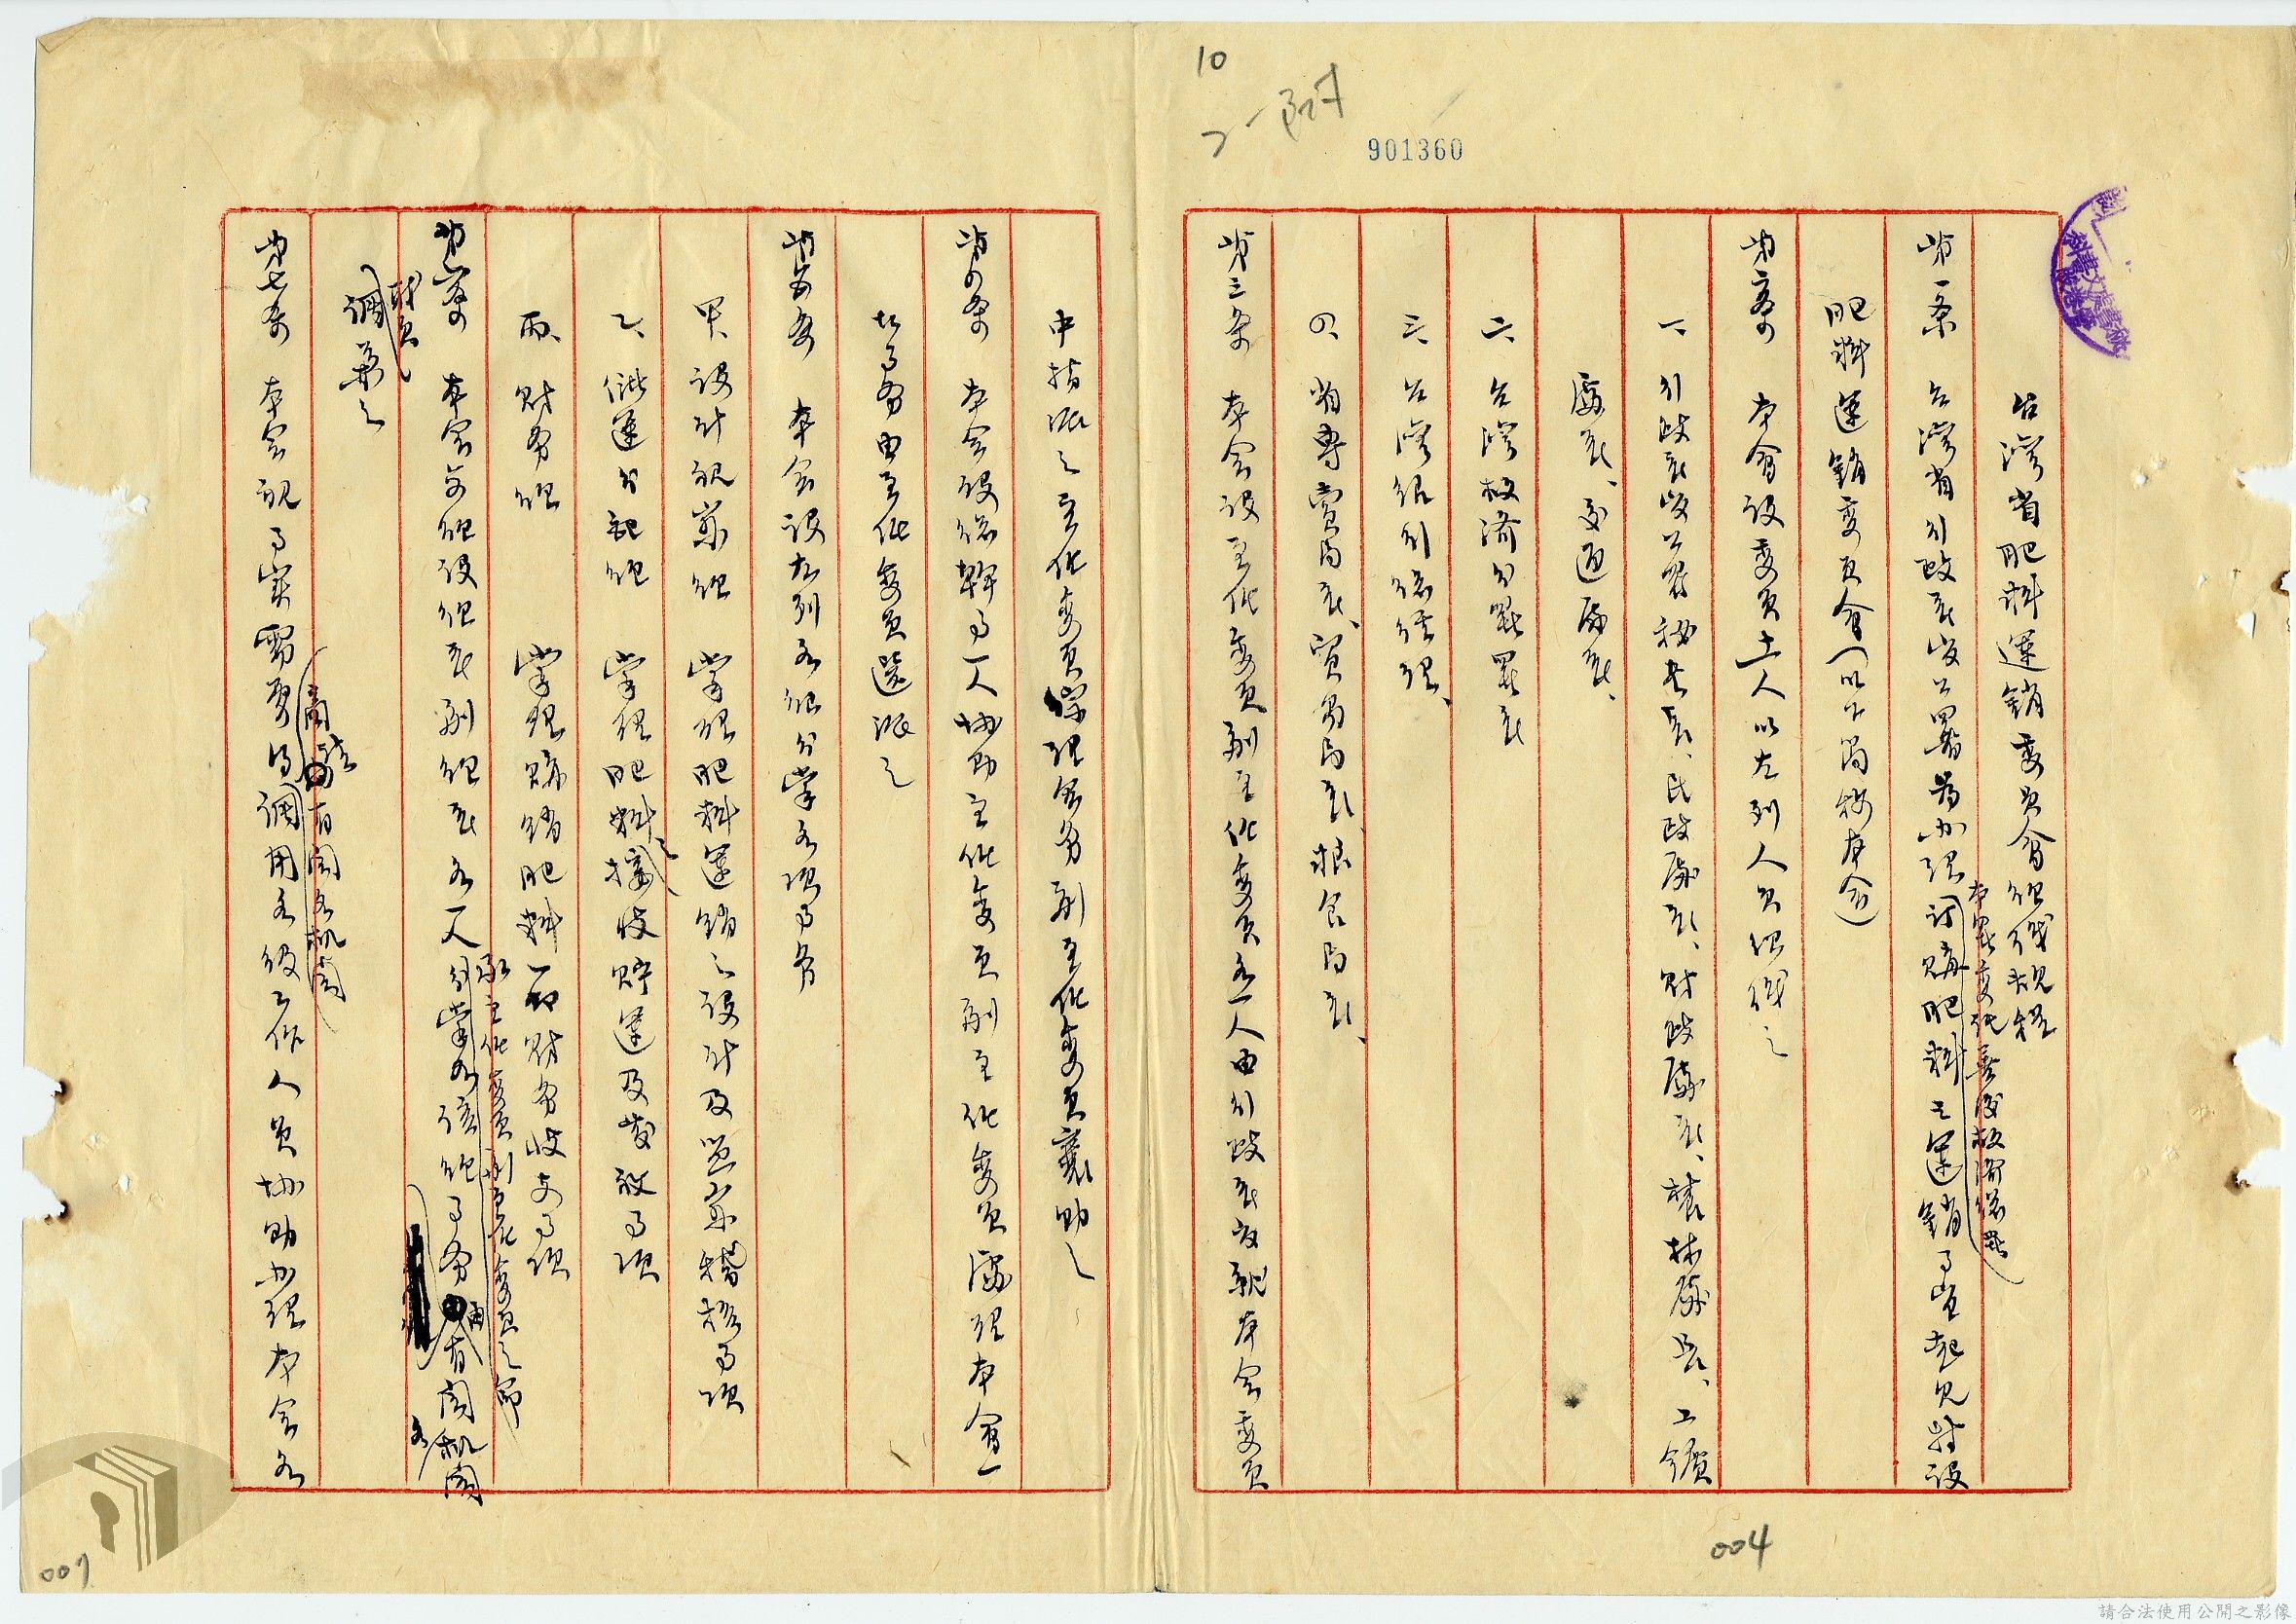 10
901360
台灣省肥料運銷委員會組織規程
第一条 台灣省行政長官公署為办理訂購肥料之運銷事宜起見特設
本署受託善後救濟總署
肥料運銷委員會(以下簡称本会)
第二条 本會設委員十一人以左列人員組織之
一、行政長官公署秘书長、民政處長、財政處長、農林處長、工鑛
處長、交通處長、
二、台灣救濟分署署長
三、台灣銀行總經理、
四、省專賣局長、貿易局長、粮食局長、
第三条 本会設主任委員副主任委員各一人由行政長官就本会委員
中指派之主任委員綜理会务副主任委員襄助之
第四条 本会設總幹事一人协助主任委員副主任委員處理本會一
切事务由主任委員選派之
第五条 本会設左列各組分掌各項事务
甲、設計視察組 掌理肥料運銷之設計及監察稽核事項
乙、儲運分配組 掌理肥料之接收貯運及發放事項
丙、財务組 掌理賒銷肥料一切財务收支事項
第六条 本会各組設組長副組長各一人分掌各該組事务由有関机関
承主任委員副主任委員之命
各
職員
調兼之
第七条 本会視事实需要得調用各級工作人員协助办理本会各
商請有関各机関
004
007
請合法使用公開之影像